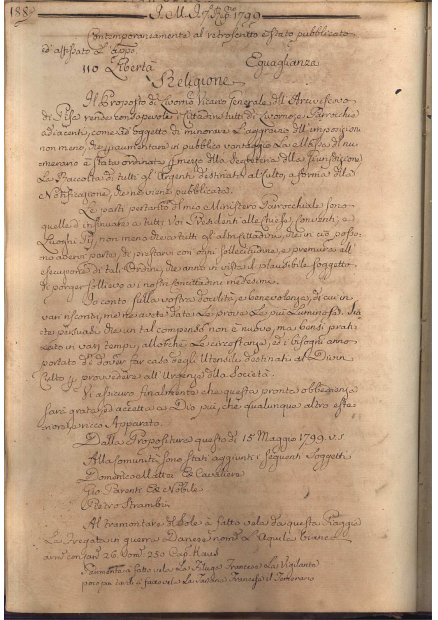 188
1799
Contemporaneamente al retroscritto è stato pubblicato
ed affissato l'appo
110 Libertà Eguaglianza
Religione
Il Proposto di Livorno Vicario Generale dell Arcivescovo
di Pisa rende consapevoli i Cittadini tutti di Livorno, e Parrocchie
adiacenti, come ad oggetto di minorare l'aggravio dell'imposizioni
non meno, che aumentare in pubblico vantaggio la massa di nu-
merario è stata ordinata
La Raccolta di tutti gl'Argenti destinati al Culto, a forma della
Notificazione, che ne viene pubblicata.
Le parti pertanto del mio Ministero Parrocchiale sono
quelle d'insinuare a tutti voi Presidenti alle Chiese, Conventi, e
Luoghi Pij non meno che a tutti gl'altri Cittadini, che in ciò posso-
no avervi parte, di prestarsi con ogni sollecitudine, e premura all'
esecuzione di tali Ordini, che anno in vista il plausibile soggetto
di porger sollievo a i nostri Concittadini medesimi.
Io conto sulla vostra docilità, e benevolenza, di cui in
vari riscontri, me ne avete date le prove le più luminose.
persuasi che un tal compenso non è nuovo, ma bensì prati-
cato in vari tempi, allorchè le circostanze, ed i bisogni anno
portato di dover far caso degli Utensili destinati al Divin
Culto p provvedere all'Urgenze della Società.
Vi assicuro finalmente che questa pronta obbedienza
sarà grata, ed accetta a Dio più, che qualunque altro este-
riore, e ricco Apparato.
Dalla Propositura questo dì 15 Maggio 1799. v.s
Alla Comunità sono stati aggiunti i seguenti Soggetti
Domenico Mattei Ex Cavaliere
Gio Parenti Ex Nobile
Pietro Strambi
Al tramontare del Sole à fatto vela da questa Piaggia
La Fregata in guerra Danese nom L'Aquila bianca
arm con can 26. uom 250 Cap
Parimente à fatto vela La Feluga Francese La Vigilante
poco più tardi à fatto vela